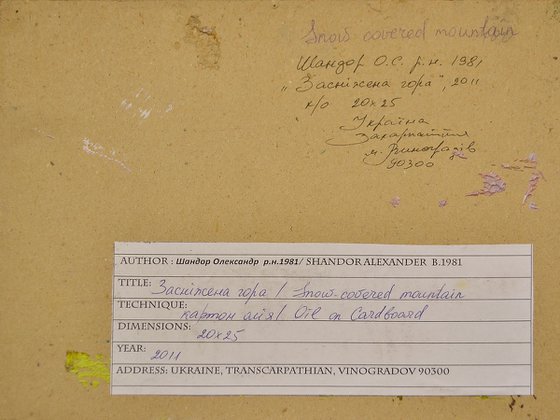 Snow covered mountain
Шандор О.С. р.н. 1981
"Засніжена гора", 2011
к/о 20х25
Україна
Закарпаття
м. Виноградів
90300
AUTHOR : Шандор Олександр р.н.1981/ SHANDOR ALEXANDER B.1981
TITLE: Засніжена гора / Snow-covered mountain
TECHNIQUE: картон олія / Oil on Cardboard
DIMENSIONS: 20x25
YEAR: 2011
ADDRESS: UKRAINE, TRANSCARPATHIAN, VINOGRADOV 90300